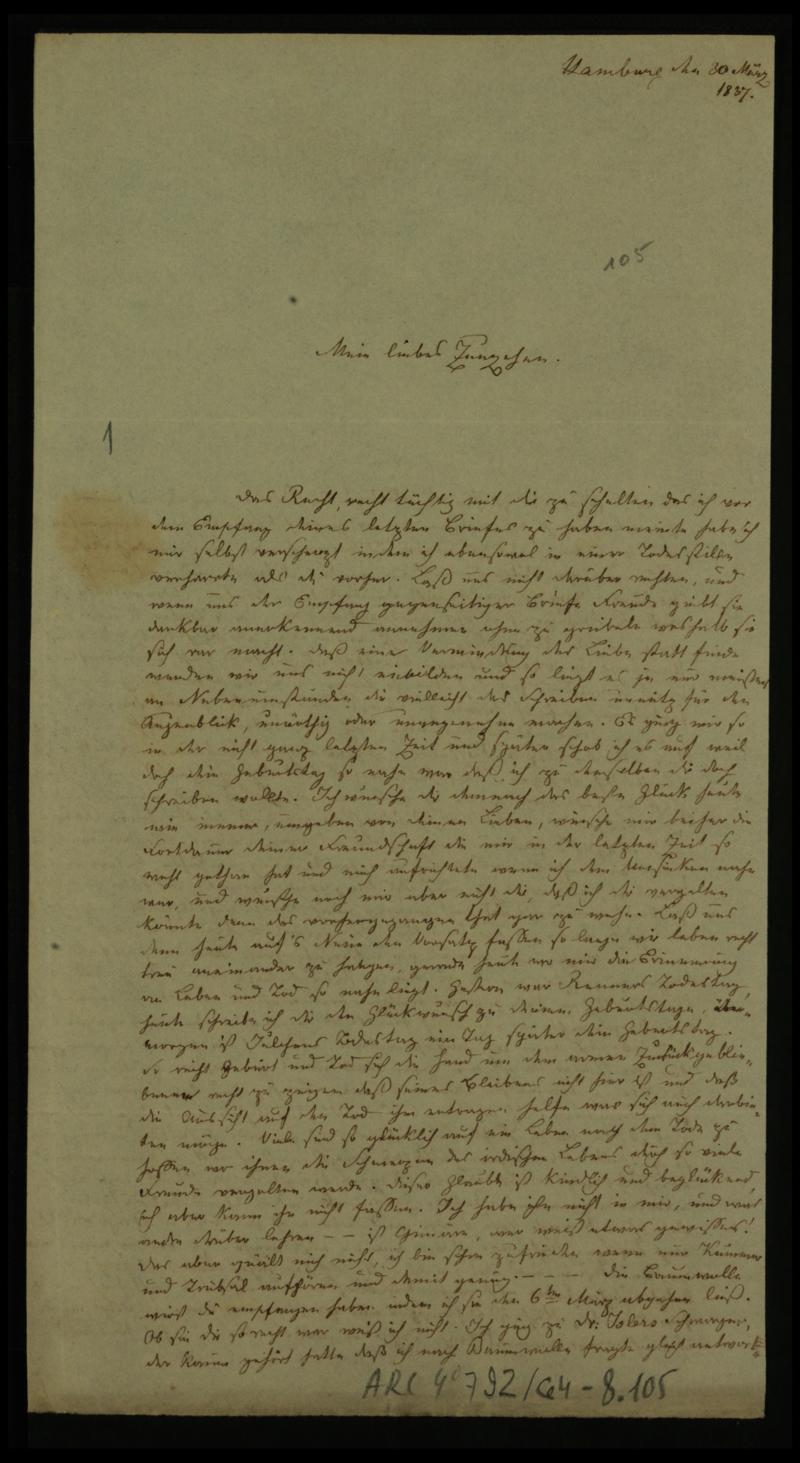 Hamburg den 30 März
1837.
105
Mein liebes Zunzchen.
1
Das Recht, recht tüchtig mit dir zu schelten das ich vor
dem Empfang deines letzten Briefes zu haben meinte habe ich
mir selbst verscherzt indem ich ebensowol in einer Todesstille
verharrte als du vorher. Laß uns nicht darüber rechten, und
wenn uns der Empfang gegenseitiger Briefe Freude giebt sie
dankbar anerkennend annehmen ohne zu grübeln weshalb sie
sich rar macht. Daß eine Verminderung der Liebe statt finde
werden wir uns nicht einbilden und so liegt es ja nur meistens
an Nebenumständen die vielleicht das Schreiben unnütz für den
Augenblick, unnöthig oder unangenehm machen. Es ging mir so
in der nicht ganz letzten Zeit und später schob ich es auf weil
doch dein Geburtstag so nahe war daß ich zu demselben dir doch
schreiben wollte. Ich wünsche dir demnach das beste Glück heute
wie immer, umgeben von deinen Lieben, wünsche mir bisher die
Fortdauer deiner Freundschaft die mir in der letzten Zeit so
wohl gethan hat und mich aufrichtete wenn ich dem Versinken nahe
war, und wünsche noch mir aber nicht dir, daß ich dir vergelten
könnte denn das vorhergegangene that gar zu wehe. Laß uns
denn heute auf's Neue den Vorsatz fassen so lange wir leben recht
treu aneinander zu hangen, gerade heute wo mir die Erinnerung
an Leben und Tod so nahe liegt. Gestern war Renners Todestag,
heute schreibe ich dir den Glückwunsch zu deinem Geburtstage, über-
morgen ist Julchens Todestag ein Tag später dein Geburtstag.
So reicht Geburt und Tod sich die Hand um dem armen Zurückgeblie-
benen recht zu zeigen daß seines Bleibens nicht hier ist und daß
die Aussicht auf den Tod ihm ertragen helfe was sich auch darbie-
ten möge. Viele sind so glücklich auf ein Leben nach dem Tode zu
hoffen wo ihnen die Schmerzen des irdischen Lebens durch so viele
Freuden vergolten werde. Dieser Glaube ist kindlich und beglückend,
ich aber kann ihn nicht fassen. Ich habe ihn nicht in mir, und was
andre drüber lehren – – ist Chimäre, wer weiß etwas gewisses!
Das aber quält mich nicht, ich bin schon zufrieden wenn nur Kummer
und Trübsal aufhören und damit genug. – – – Die Baumwolle
wirst du empfangen haben indem ich sie den 6ten März abgehen ließ.
Ob sie dir so recht war weiß ich nicht. Ich ging zu Dr:
der kaum gehört hatte daß ich nach Baumwolle fragte gleich antwort-
ARC 4° 792/G4-8.105